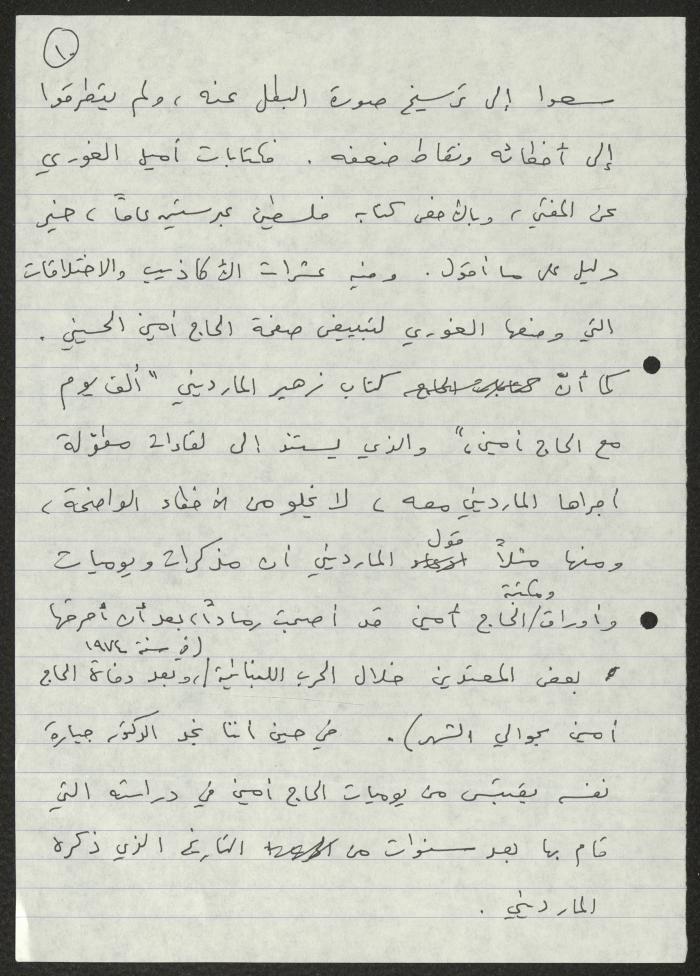 ١٠
سعوا إلى ترسيخ صورة البطل عنه ، ولم يتطرقوا
إلى أخطائه ونقاط ضعفه . فكتابات أميل الغوري
عن المفتي ، وبالأخص كتابه فلسطين عبر ستين عاماً ، خير
دليل على ما أقول . وفيه عشرات الأكاذيب والاختلاقات
التي وضعها الغوري لتبييض صفحة الحاج أمين الحسيني .
كما أنّ كتاب زهير المارديني "ألف يوم
مع الحاج أمين"، والذي يستند الى لقاءات مطوّلة
اجراها المارديني معه ، لا يخلو من الأخطاء الواضحة ،
قول
ومنها مثلاً المارديني أن مذكرات ويوميات
ومكتبة
وأوراق/الحاج أمين قد أصبحت رماداً، بعد أن أحرقها
(في سنة ١٩٧٤
بعض المعتدين خلال الحرب اللبنانية/، وبعد وفاة الحاج
أمين بحوالي الشهر) . في حين اننا نجد الدكتور جبارة
نفسه يقتبس من يوميات الحاج أمين في دراسته التي
قام بها بعد سنوات من التاريخ الذي ذكره
المارديني .